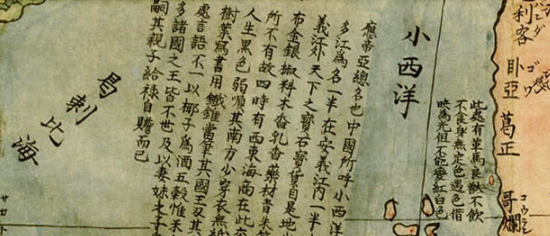 利客
臥亞
ゴワ
葛正
哥爛
此處有革馬良獸不飲
不食身無定色遇色借
映為光但不能變紅白色
小西洋
應帝亞總名也中國所呼小西洋
多江為名一半在安義江內一半
義江外天下之寶石寶貨自是地
布金銀椒料木香乳香藥材青朱
所不有故四時有西東海商在此交
人生黑色弱順其南方少穿衣無紙
樹葉寫書用鐵錐當筆其國王及其
處言語不一以椰子為酒五穀惟米
多諸國之王皆不世及以妻妹之子
嗣其親子給祿自贍而已
曷剌比海